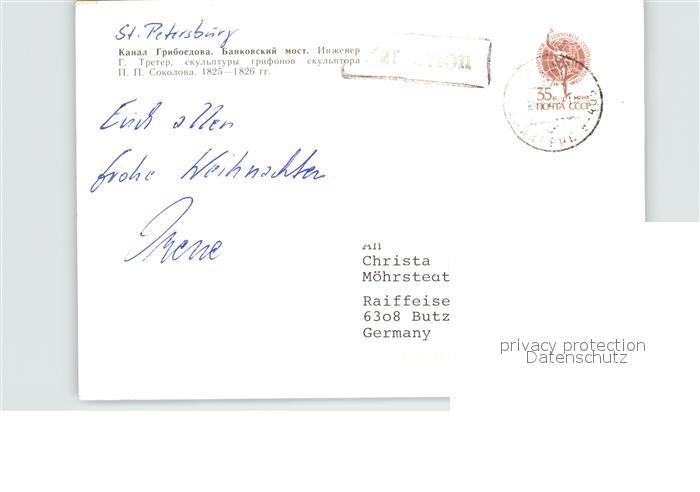 St. Petersburg
Канал Грибоедова. Банковский мост. Инженер
Г. Третер, скульптуры грифонов скульптора
П. П. Соколова. 1825—1826 гг.
Par avion
35 к.
ПОЧТА СССР
Euch allen
frohe Weihnachten
Irene
An
Christa
Möhrstedt
Raiffeise
6308 Butz
Germany
privacy protection
Datenschutz